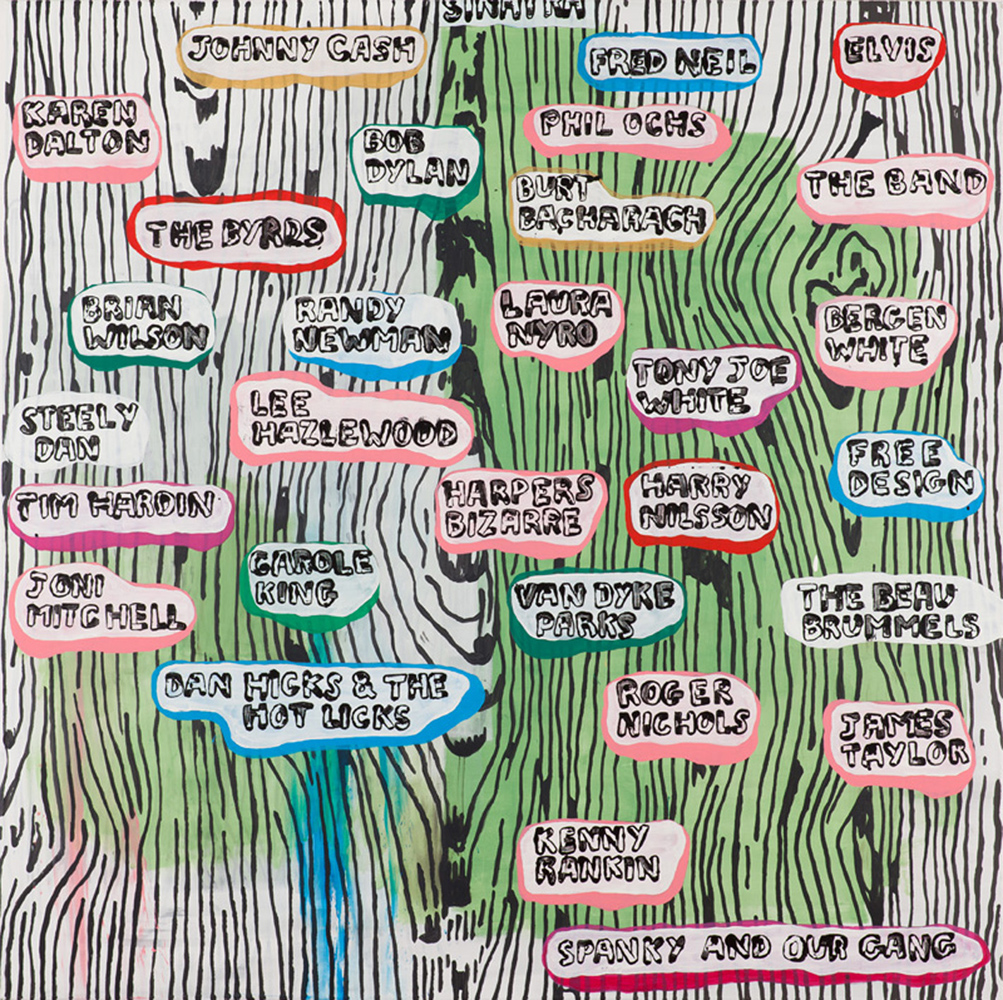 SINATRA
JOHNNY CASH
FRED NEIL
ELVIS
KAREN
DALTON
BOB
DYLAN
PHIL OCHS
BURT
BACHARACH
THE BAND
THE BYRDS
BRIAN
WILSON
RANDY
NEWMAN
LAURA
NYRO
BERGEN
WHITE
TONY JOE
WHITE
STEELY
DAN
LEE
HAZLEWOOD
FREE
DESIGN
TIM HARDIN
HARPERS
BIZARRE
HARRY
NILSSON
JONI
MITCHELL
CAROLE
KING
VAN DYKE
PARKS
THE BEAU
BRUMMELS
DAN HICKS & THE
HOT LICKS
ROGER
NICHOLS
JAMES
TAYLOR
KENNY
RANKIN
SPANKY AND OUR GANG